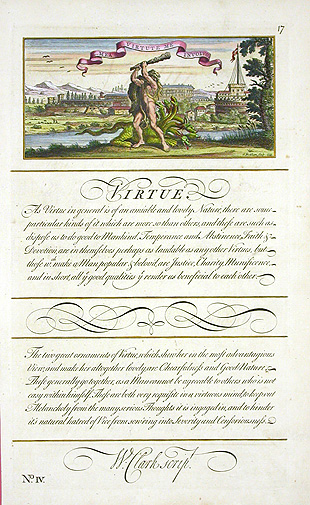 17
MEA VIRTUTE ME INVOLVO
VIRTUE.
As Virtue in general is of an amiable and lovely Nature, there are some
particular kinds of it which are more so than others, and these are such as
dispose us to do good to Mankind. Temperance and Abstinence, Faith &
Devotion are in themselves perhaps as laudable as any other Virtues, but
those wch. make a Man popular & belov'd, are Justice, Charity, Munificence,
and in short, all ye good qualities yt render us beneficial to each other.
The two great ornaments of Virtue, which shew her in the most advantagious
Views, and make her altogether lovely, are Chearfulness and Good-Nature.
These generally go together, as a Man cannot be agreeable to others who is not
easy within himself. These are both very requisite in a virtuous mind, to keep out
Melancholy from the many serious Thoughts it is engaged in, and to hinder
its natural hatred of Vice from sow'ring into Severity and Censoriousness.
Wm. Clark scrips.
No. IV.